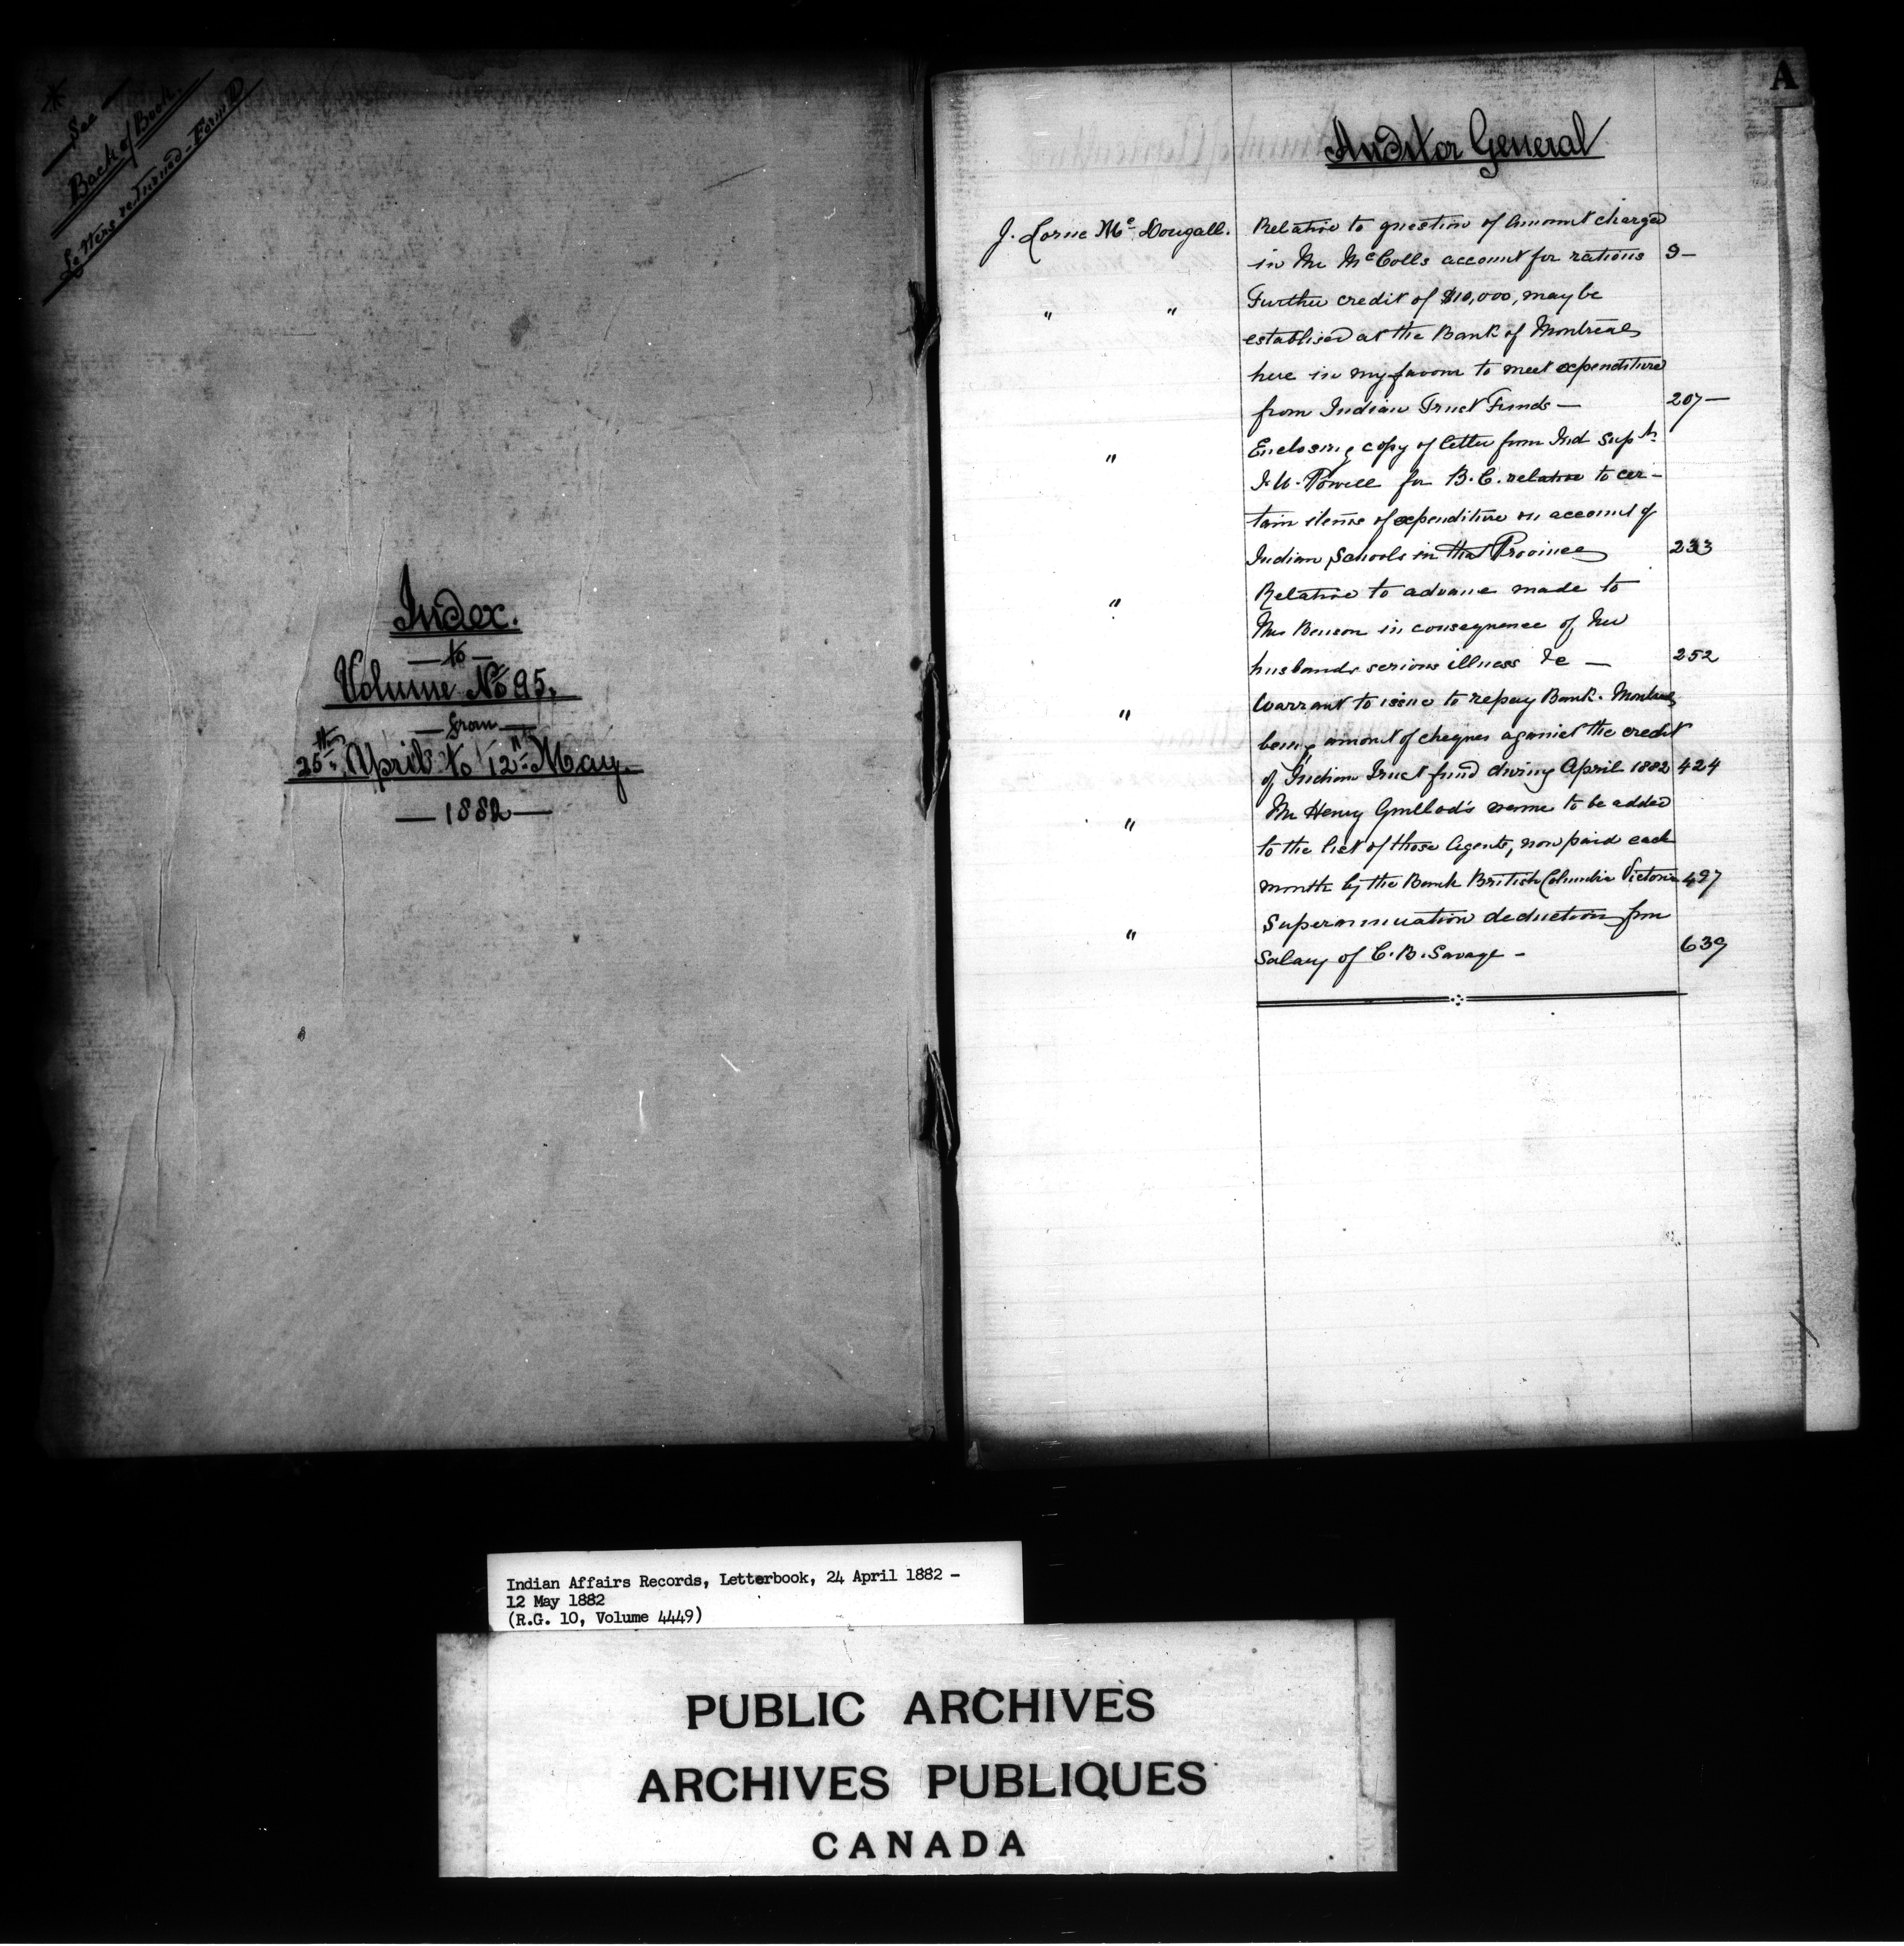 * See
Back of Book.
Letters returned - Form D
Index.
— to —
Volume No 95.
— from —
25th April to 12th May.
— 1882 —
A
Auditor General
J. Lorne Mc Dougall. Relative to question of amount charged
in Mr McColls account for rations 9 —
" " Further credit of $10,000, may be
establised at the Bank of Montreal
here in my favour to meet expenditure
from Indian Trust Funds — 207 —
" Enclosing copy of letter from Ind Supt
I. W. Powell for B.C. relative to cer-
tain items of expenditure on account of
Indian Schools in that Province 233
" Relative to advance made to
Mrs Benson in consequence of her
husbands serious illness &c — 252
" Warrant to issue to repay Bank. Montreal
being amount of cheques against the credit
of Indian Trust fund during April 1882 424
" Mr Henry Guillod's name to be added
to the list of those Agents, now paid each
month by the Bank British Columbia Victoria 497
" Superannuation deduction from
Salary of C. B. Savage - 639
Indian Affairs Records, Letterbook, 24 April 1882 -
12 May 1882
(R.G. 10, Volume 4449)
PUBLIC ARCHIVES
ARCHIVES PUBLIQUES
CANADA